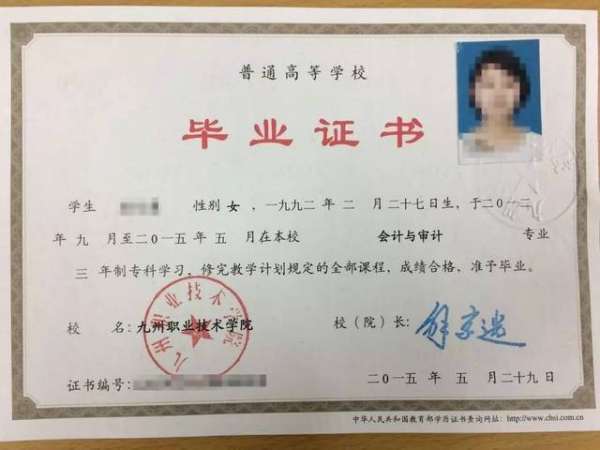 普通高等学校
毕业证书
学生 性别 女 ，一九九二年 二 月二十七日生，于二〇一二
年 九 月至二〇一五年 五 月在本校 会计与审计 专业
三 年制专科学习，修完教学计划规定的全部课程，成绩合格，准予毕业。
校 名：九州职业技术学院 校（院）长：
九州职业技术学院
证书编号： 二〇一五年 五 月二十九日
中华人民共和国教育部学历证书查询网址：http://www.chsi.com.cn